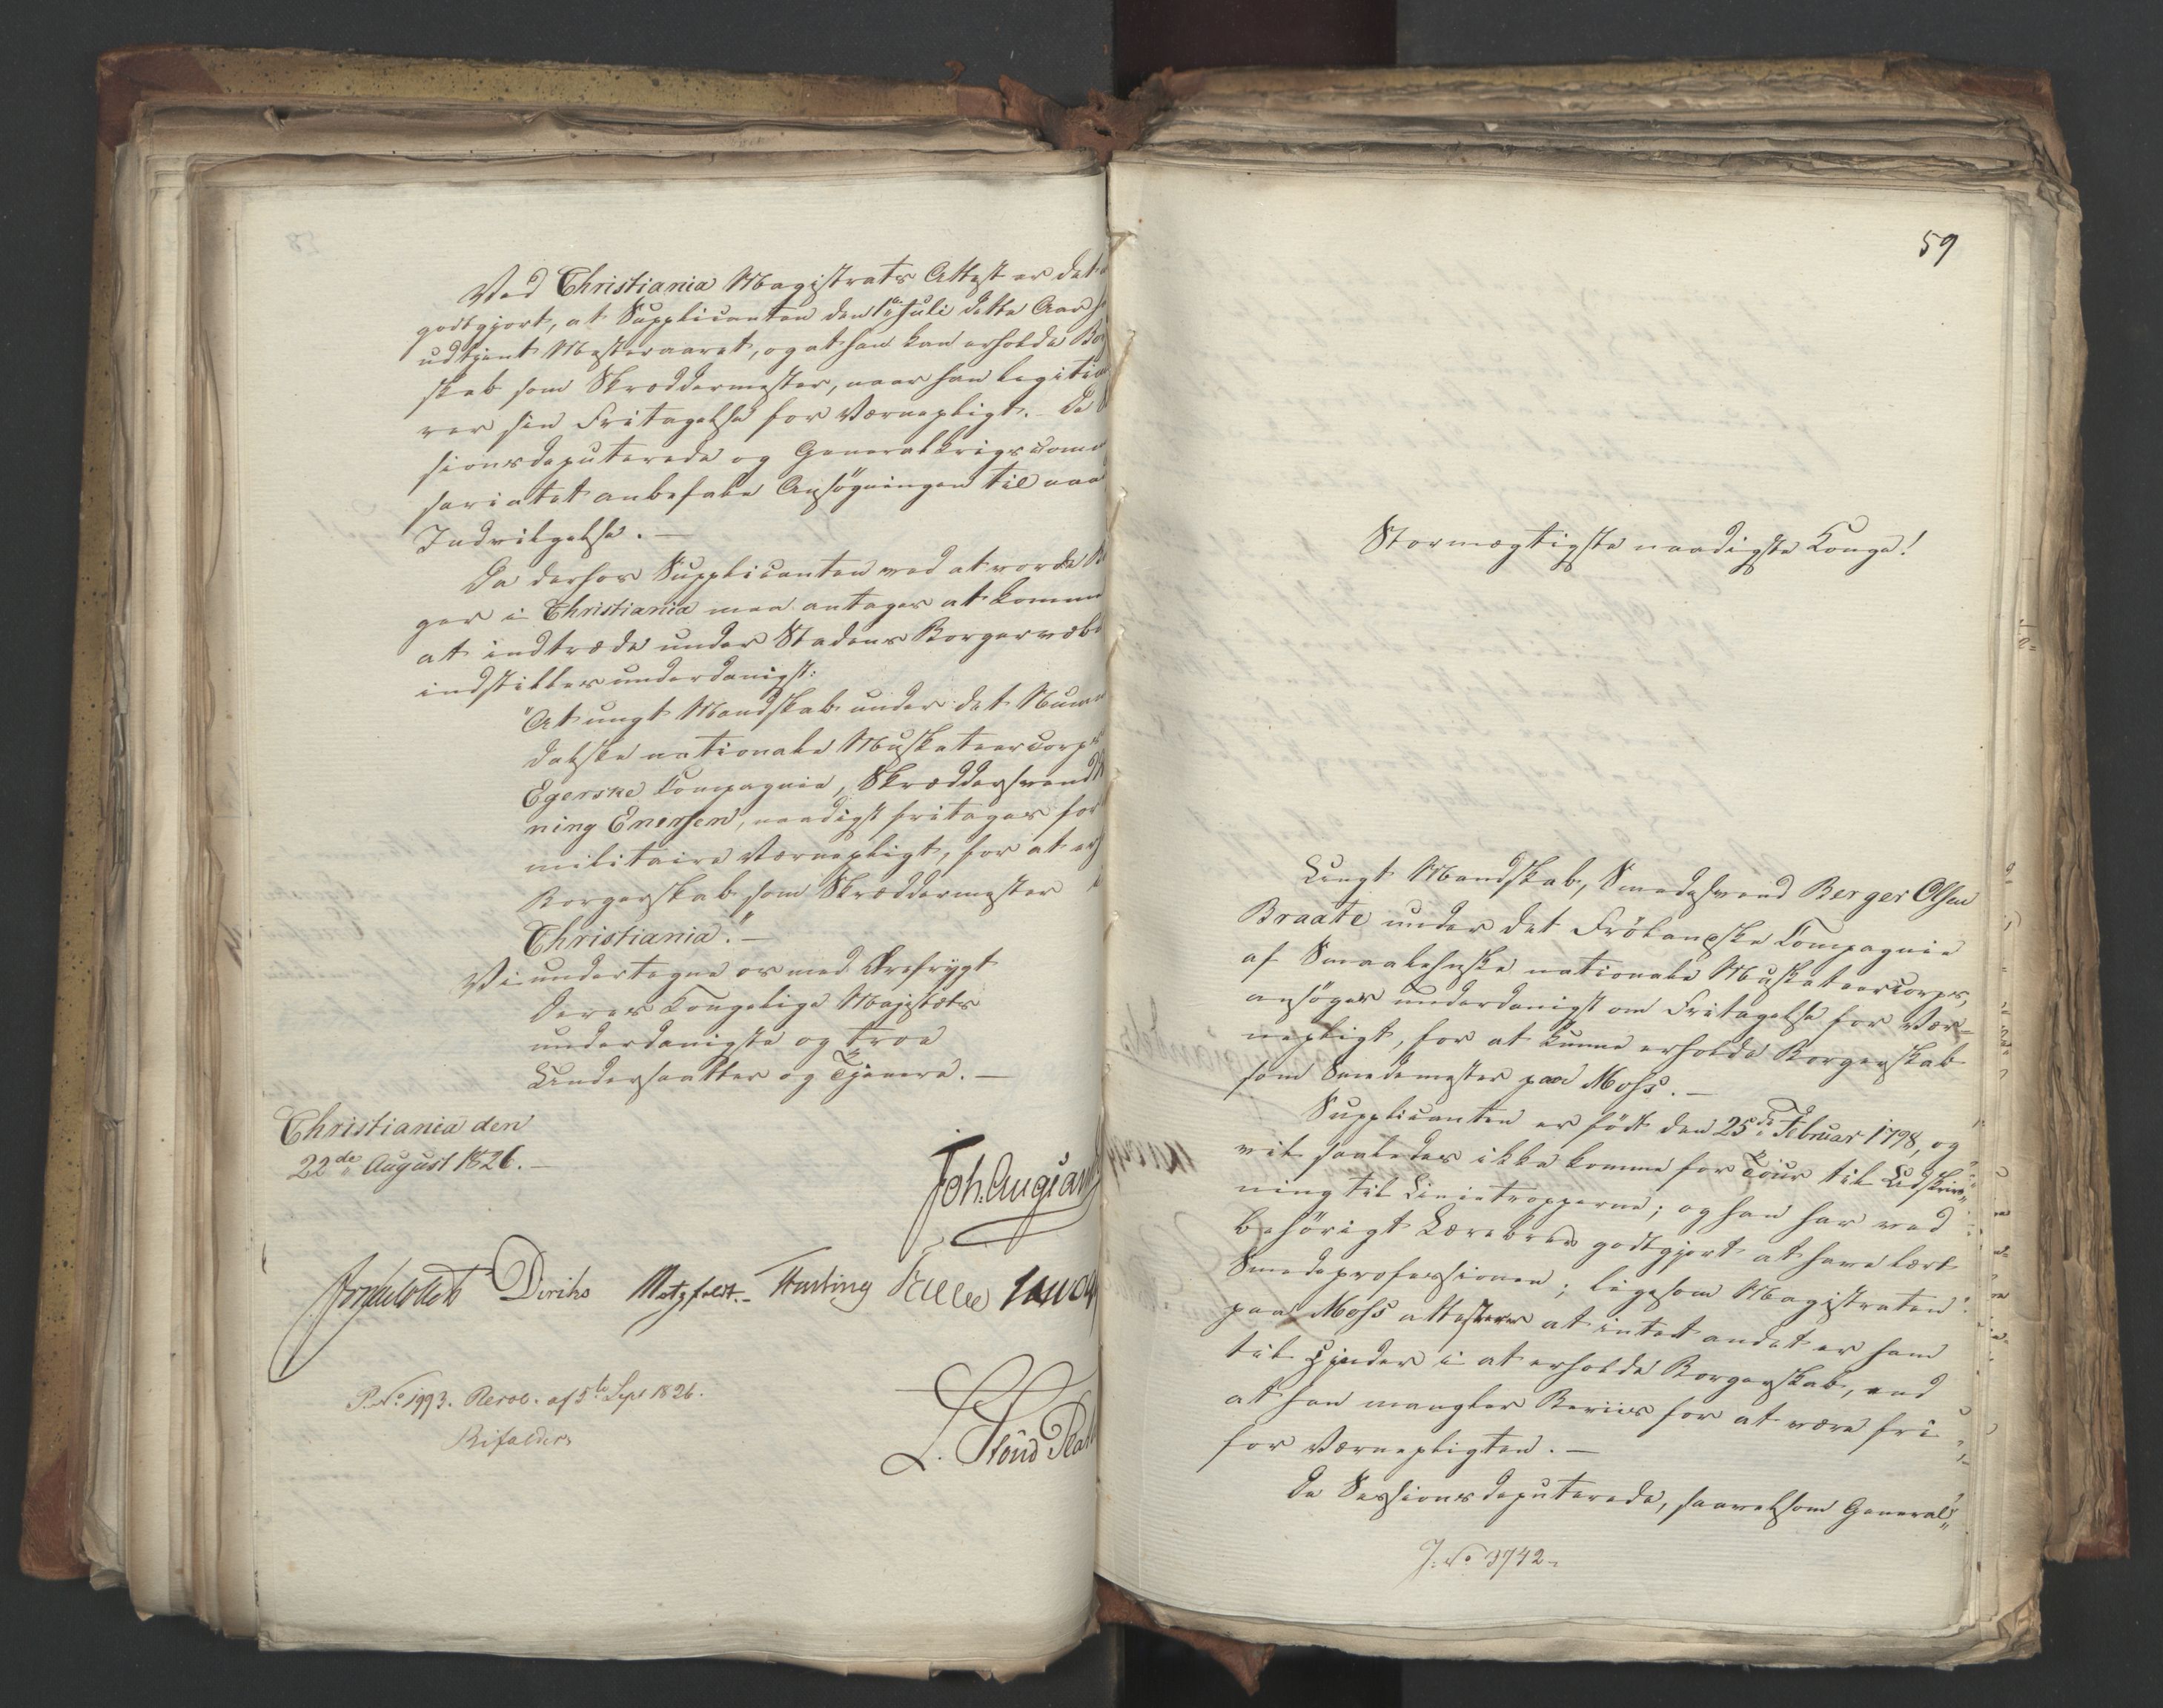 Ved Christiania Magistrats Attest er det
godtgjort, at Supplicanten den 1ste Juli dette Aar
udtjent Mesteraaret, og at han kan erholde Bor
skab som Skræddermester, naar han legitime
rer sin Fritagelse for Værnepligt. – De
sionsdeputerede og Generalkrigscommi
sariatet anbefale Ansøgningen til naa
Indvilgelse. –
Da derfor Supplicanten ved at vorde Bor
ger i Christiania maa antages at komme
at indtræde under Stadens Borgervæbn
indstilles underdanigst:
"At ungt Mandskab under det Numme
dalske nationale Musketeercorps
Egerske Compagnie, Skræddersvend
ning Enersen, naadigst fritages for
militaire Værnepligt, for at erh
Borgerskab som Skræddermester i
Christiania." –
Vi undertegne os med Ærefrygt
Deres Kongelige Majestæts
underdanigste og troe
Undersaatter og Tjenere. –
Christiania den
22de August 1826. –
Joh. Aug Sand
Diriks Motzfeldt. –
L. Stoud Plat
P. No. 1993. Resol. af 5te Sept 1826.
Bifaldes
59
Stormægtigste naadigste Konge!
Ungt Mandskab, Smedesvend Berger Olsen
Braate under det Frölandske Compagnie
af Smaalehnske nationale Musketeercorps,
ansøger underdanigst om Fritagelse for Vær-
nepligt, for at kunne erholde Borgerskab
som Smedemester paa Moss. –
Supplicanten er født den 25de Februar 1798, og
vil saaledes ikke komme for Tour til Udskriv-
ning til Linietropperne; og han har ved
behörigt Lærebrev godtgjort at have lært
Smedeprofessionen; ligesom Magistraten
paa Moss attesterer at intet andet er ham
til Hinder i at erholde Borgerskab, end
at han mangler Beviis for at være fri
for Værnepligten. –
De Sessionsdeputerede, saavelsom General-
J. No 3742 –